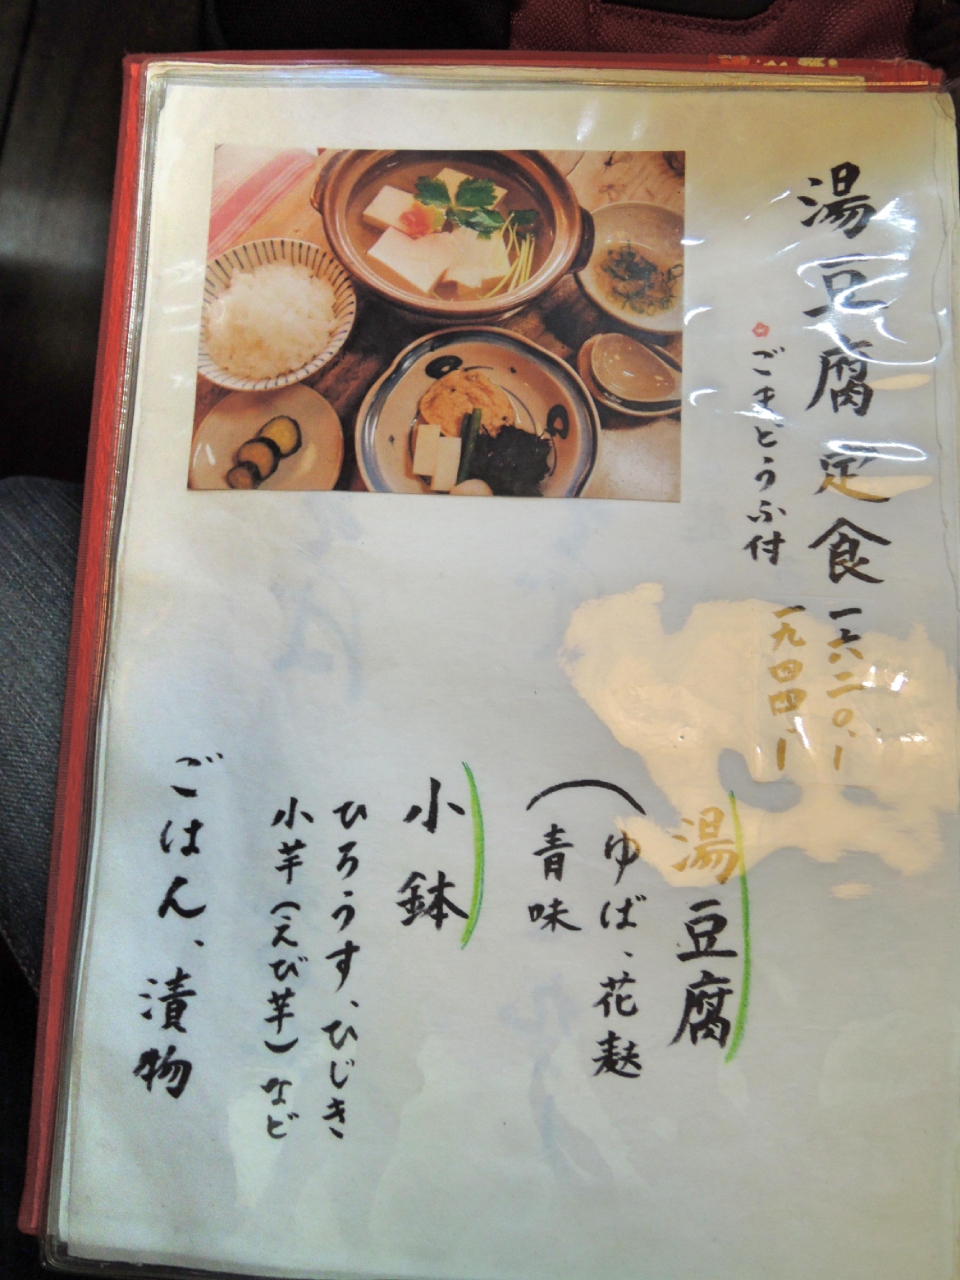 湯豆腐定食 一六二〇、ー
ごまとうふ付 一九四四、ー
湯豆腐
(ゆば、花麩
青味
小鉢
ひろうす、ひじき
小芋(えび芋)など
ごはん、漬物